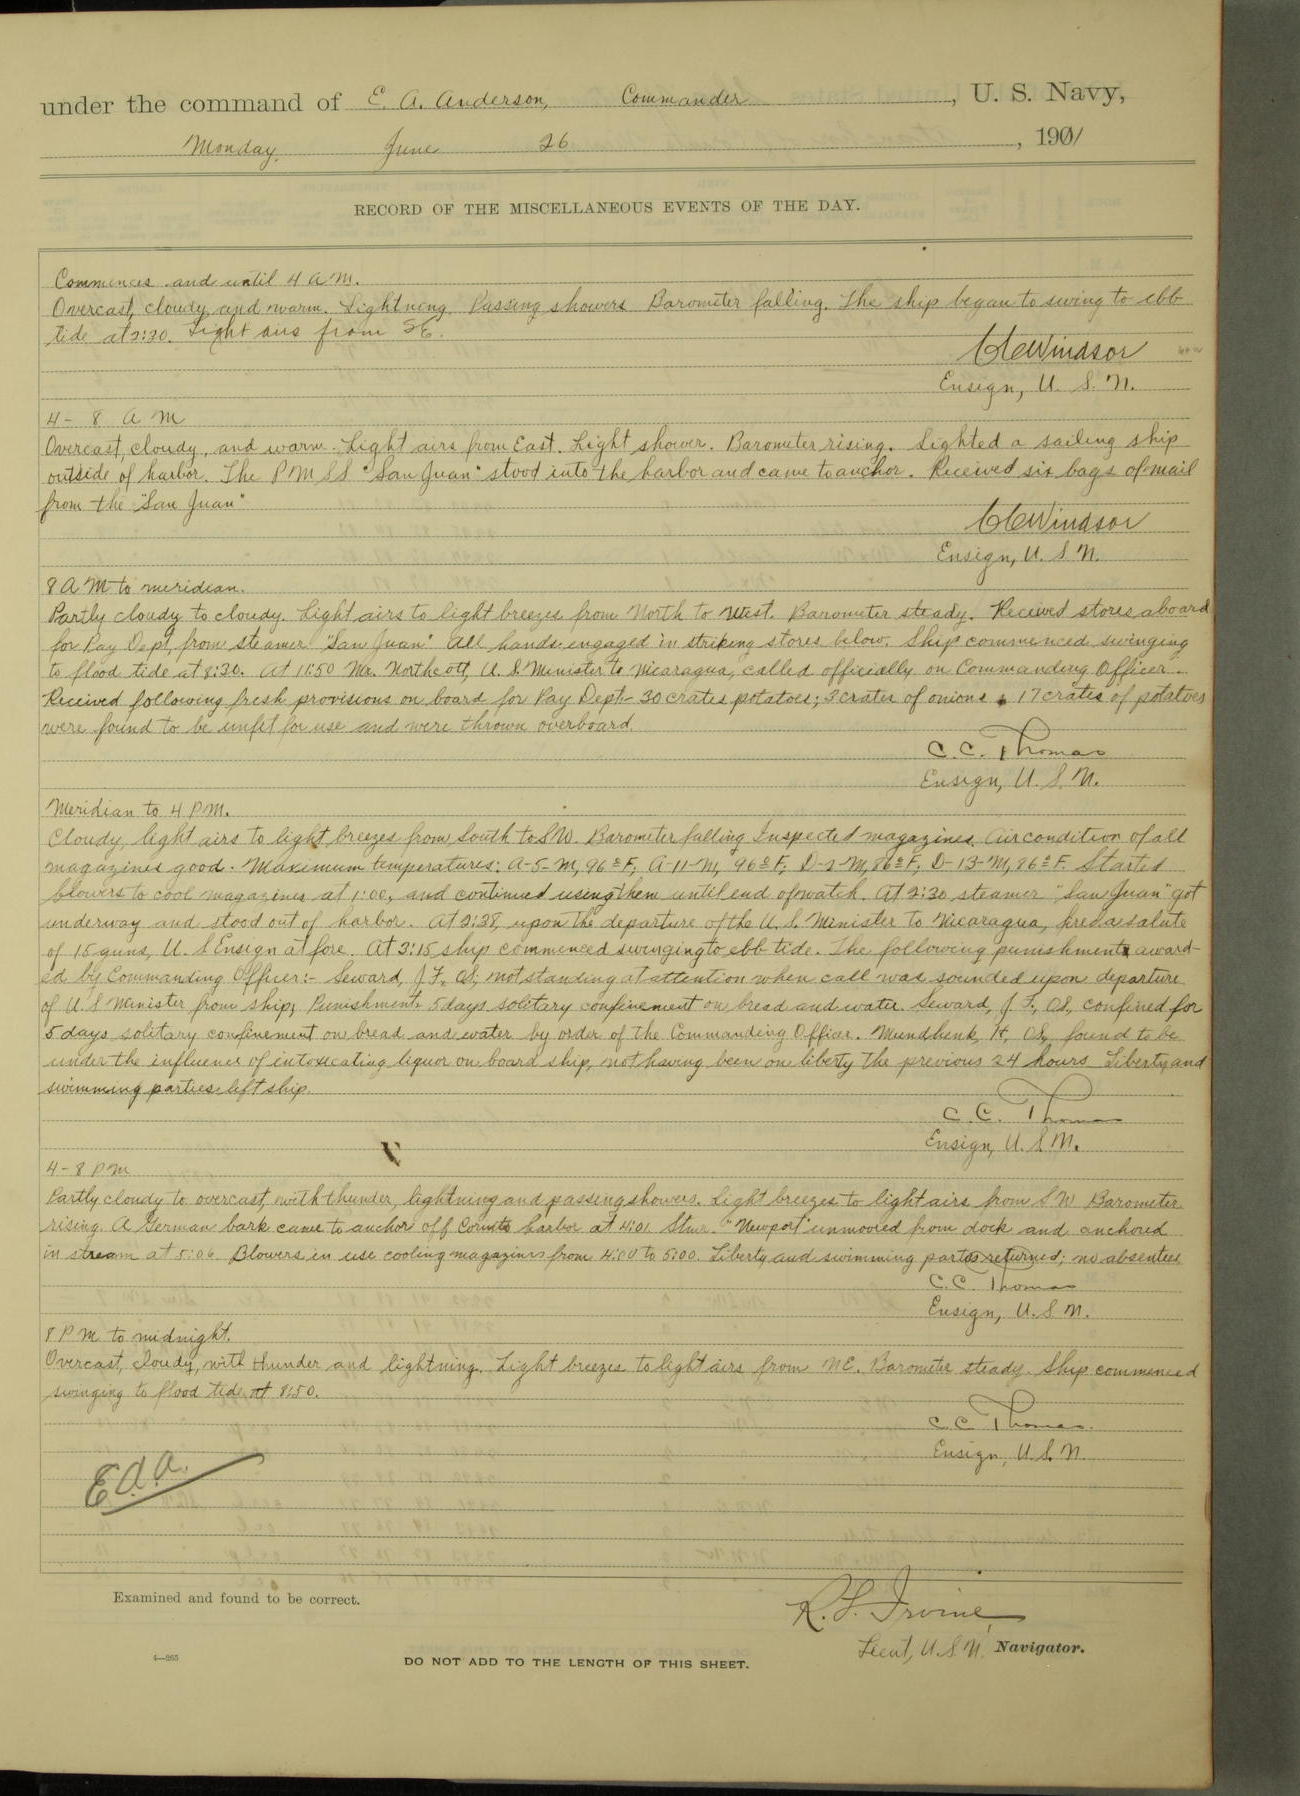 under the command of E. A. Anderson, Commander, U. S. Navy,
Monday, June 26, 1901
RECORD OF THE MISCELLANEOUS EVENTS OF THE DAY.
Commences and until 4 A M.
Overcast, cloudy, and warm. Lightning. Passing showers Barometer falling. The ship began to swing to ebb
tide at 2:20. Light airs from SE.
CCWindsor
Ensign, U. S. N.
4 - 8 A M
Overcast, cloudy, and warm. Light airs from East. Light shower. Barometer rising. Lighted a sailing ship
outside of harbor. The P M S S "San Juan" stood into the harbor and came to anchor. Received six bags of mail
from the "San Juan"
CCWindsor
Ensign, U. S. N.
8 A M to meridian.
Partly cloudy to cloudy. Light airs to light breezes from North to West. Barometer steady. Received stores aboard
for Pay Dept, from steamer "San Juan" All hands engaged in striking stores below. Ship commenced swinging
to flood tide at 8:30. At 11:50 Mr. Northcott, U. S. Minister to Nicaragua, called officially on Commanding Officer.
Received following fresh provisions on board for Pay Dept- 30 crates potatoes; 3 crates of onions. 17 crates of potatoes
were found to be unfit for use and were thrown overboard.
C. C. Thomas
Ensign, U. S. N.
Meridian to 4 P M.
Cloudy, light airs to light breezes from South to SW. Barometer falling Inspected magazines. Air condition of all
magazines good. Maximum temperatures: A-5-M, 96° F, A-11-M, 96° F, D-2-M, 86° F, D-13-M, 86° F. Started
blowers to cool magazines at 1:00, and continued using them until end of watch. At 2:30 steamer "San Juan" got
underway and stood out of harbor. At 2:38, upon the departure of the U. S. Minister to Nicaragua, fired a salute
of 15 guns, U. S Ensign at fore. At 3:15 ship commenced swinging to ebb tide. The following punishments award-
ed by Commanding Officer:- Seward, J. F, OS; not standing at attention when call was sounded upon departure
of U. S Minister from ship; Punishment: 5 days solitary confinement on bread and water. Seward, J. F, OS, confined for
5 days solitary confinement on bread and water by order of the Commanding Officer. Mundhenk, H, OS, found to be
under the influence of intoxicating liquor on board ship, not having been on liberty the previous 24 hours Liberty and
swimming parties left ship.
C. C. Thomas
Ensign, U. S. N.
4 - 8 P M
Partly cloudy to overcast, with thunder, lightning and passing showers. Light breezes to light airs from S W Barometer
rising. A German bark came to anchor off Corinto harbor at 4:01. Stmr. "Newport" unmoored from dock and anchored
in stream at 5:06. Blowers in use cooling magazines from 4:00 to 5:00. Liberty and swimming parties returned; no absentees
C. C. Thomas
Ensign, U. S. N.
8 P M to midnight.
Overcast, cloudy, with thunder and lightning. Light breezes to light airs from NE. Barometer steady. Ship commenced
swinging to flood tide at 8:50.
C. C. Thomas.
Ensign, U. S. N.
E. A. A.
Examined and found to be correct.
R. L. Irvine,
Lieut, U. S. N. Navigator.
4—265
DO NOT ADD TO THE LENGTH OF THIS SHEET.